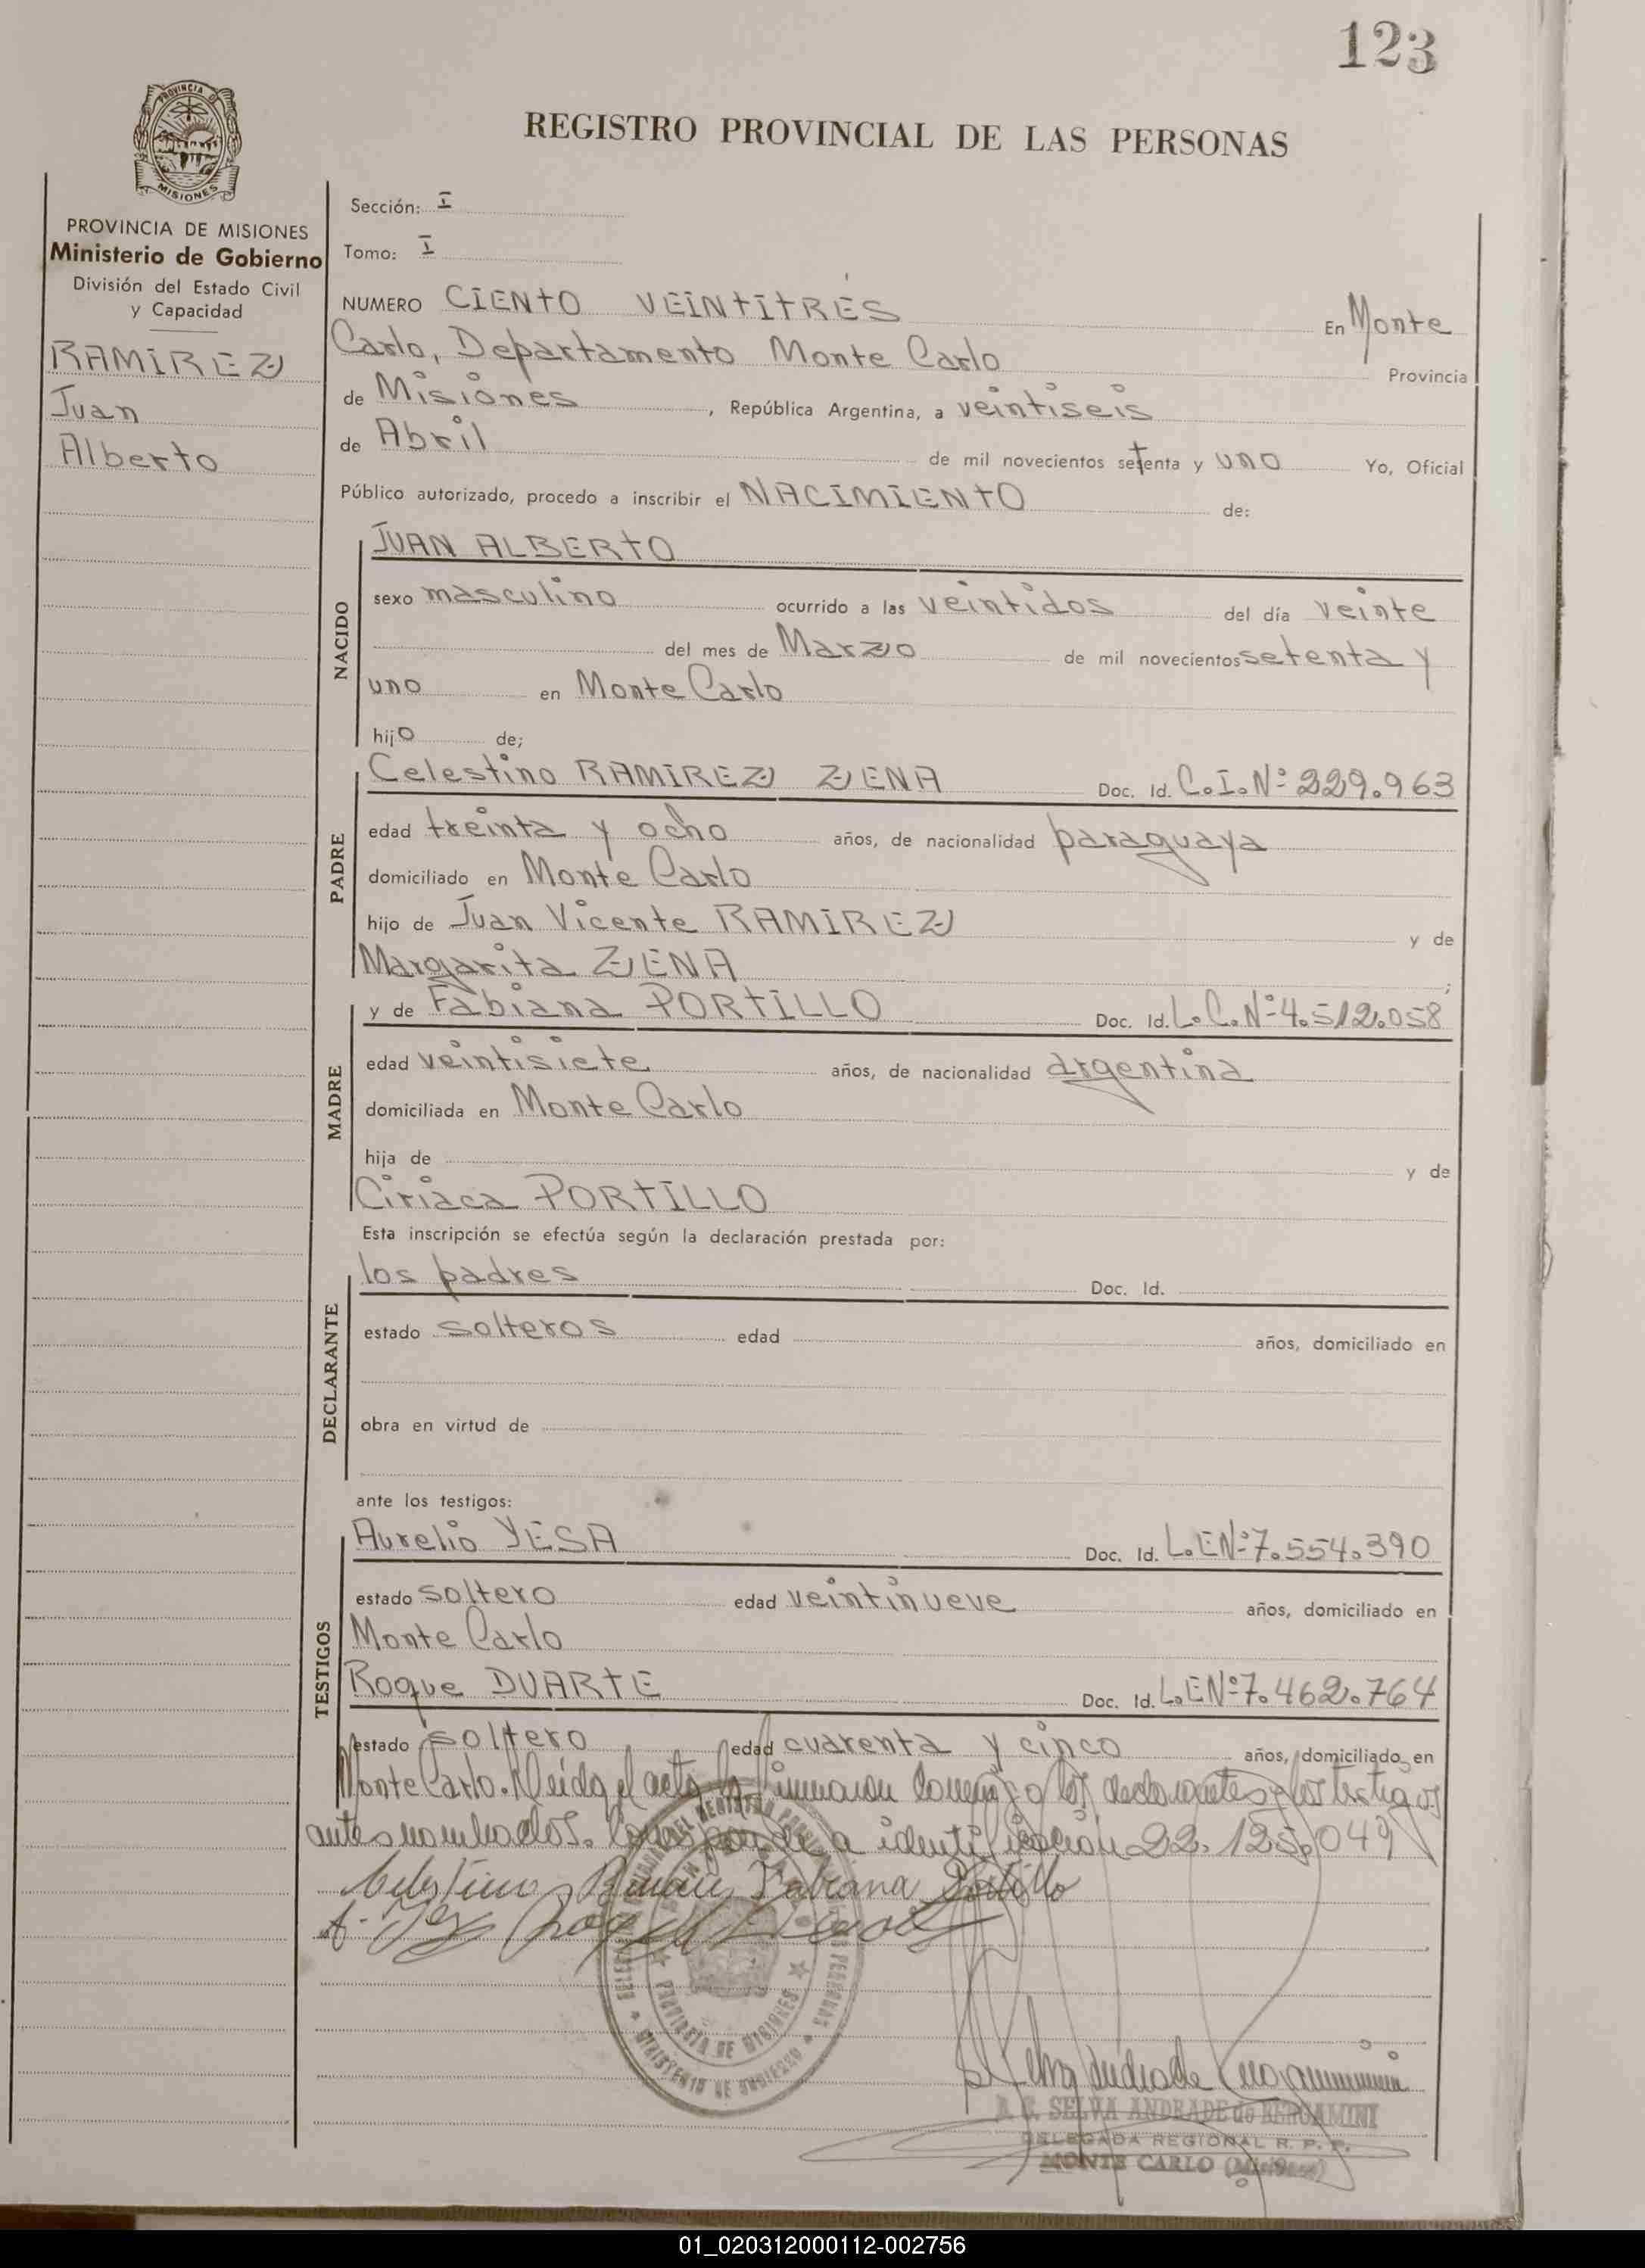 123
REGISTRO PROVINCIAL DE LAS PERSONAS
PROVINCIA DE MISIONES
PROVINCIA DE MISIONES
Ministerio de Gobierno
División del Estado Civil
y Capacidad
RAMIREZ
Juan
Alberto
Sección: I
Tomo: I
NUMERO CIENTO VEINTITRÉS En Monte
Carlo, Departamento Monte Carlo Provincia
de Misiones, República Argentina, a veintiseis
de Abril de mil novecientos setenta y uno Yo, Oficial
Público autorizado, procedo a inscribir el NACIMIENTO de:
NACIDO
JUAN ALBERTO
sexo masculino ocurrido a las veintidos del día veinte
del mes de Marzo de mil novecientos setenta y
uno en Monte Carlo
hijo de;
PADRE
Celestino RAMIREZ ZENA Doc. Id. C.I.Nº 229.963
edad treinta y ocho años, de nacionalidad paraguaya
domiciliado en Monte Carlo
hijo de Juan Vicente RAMIREZ y de
Margarita ZENA ;
MADRE
y de Fabiana PORTILLO Doc. Id. L.C.Nº 4.512.058
edad veintisiete años, de nacionalidad argentina
domiciliada en Monte Carlo
hija de y de
Ciriaca PORTILLO
Esta inscripción se efectúa según la declaración prestada por:
DECLARANTE
los padres Doc. Id.
estado solteros edad años, domiciliado en
obra en virtud de
ante los testigos:
TESTIGOS
Aurelio YESA Doc. Id. L.E.Nº 7.554.390
estado soltero edad veintinueve años, domiciliado en
Monte Carlo
Roque DUARTE Doc. Id. L.E.Nº 7.462.764
estado soltero edad cuarenta y cinco años, domiciliado en
Monte Carlo. Leída el acta la firmaron conmigo los declarantes y los testigos
antes nombrados. Corresponde a identificación 22.125.049
Celestino Ramirez Fabiana Portillo
PROVINCIA DE MISIONES
MINISTERIO DE GOBIERNO
SELVA ANDRADE de BERGAMINI
DELEGADA REGIONAL R. P. P.
MONTE CARLO (Misiones)
01_020312000112-002756